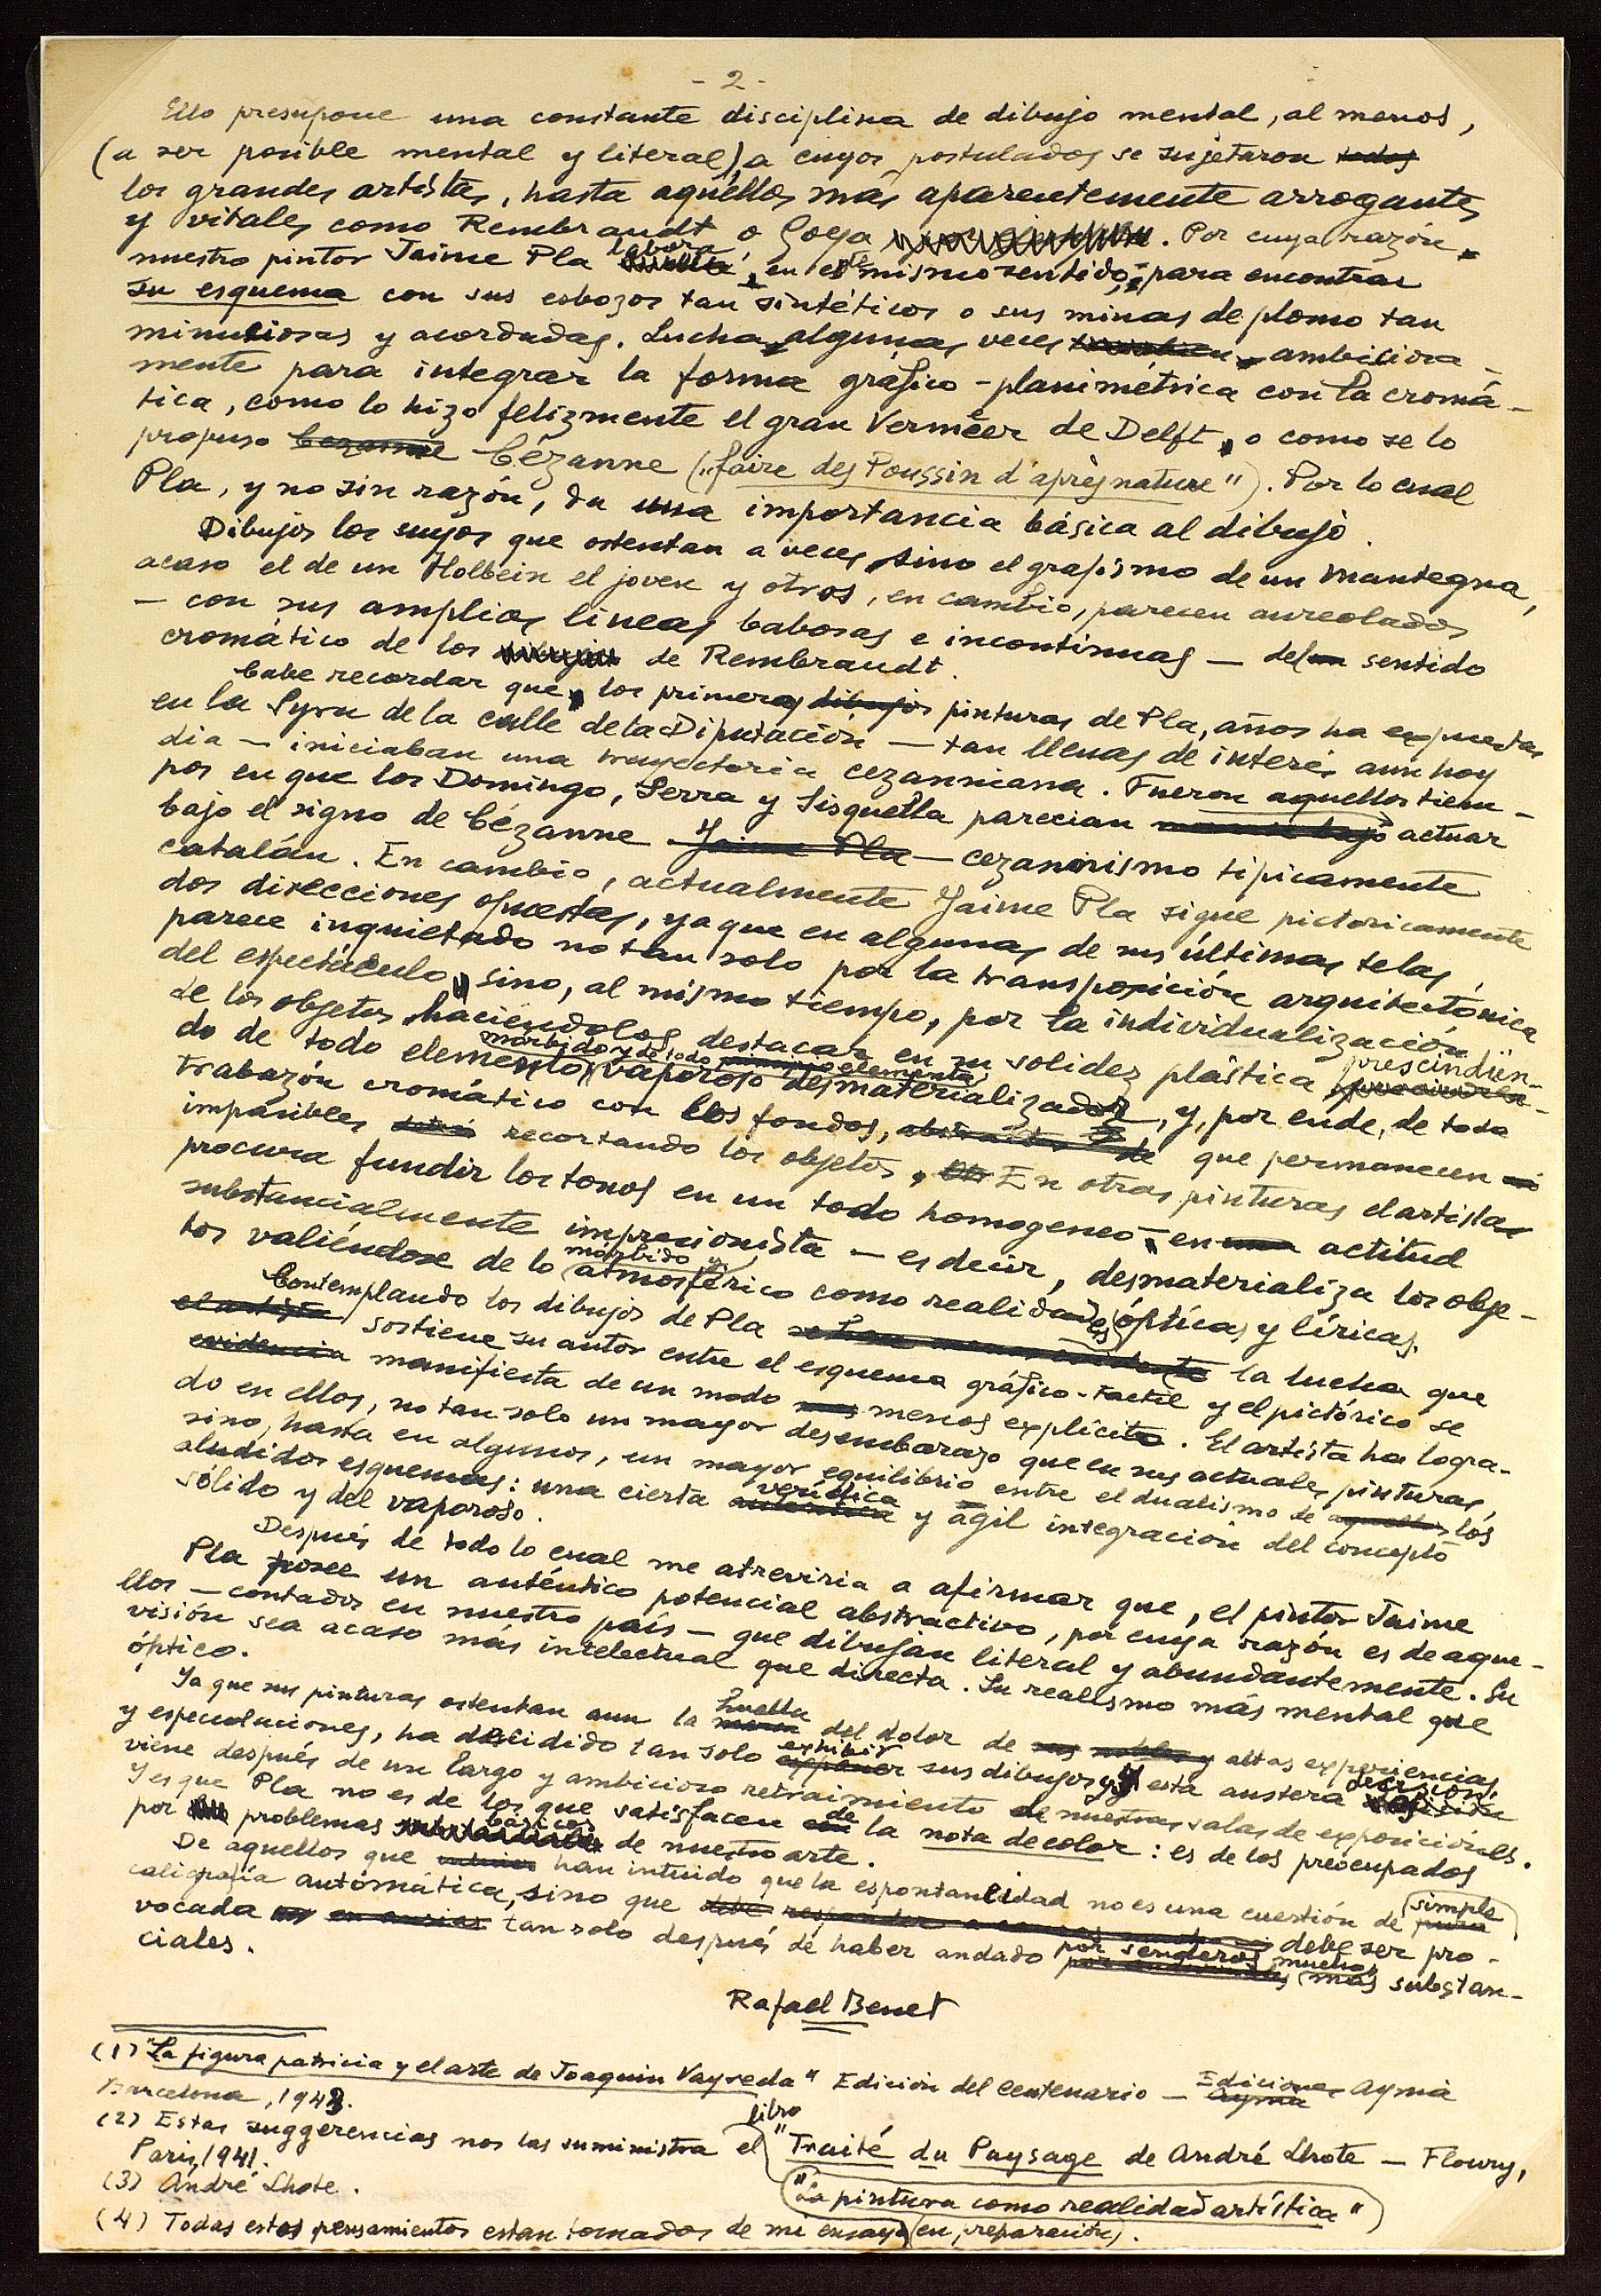 - 2 -
Ello presupone una constante disciplina de dibujo mental, al menos,
(a ser posible mental y literal), a cuyos postulados se sujetaron todos
los grandes artistas, hasta aquéllos más aparentemente arrogantes
y vitales como Rembrandt o Goya . Por cuya razón
labora
nuestro pintor Jaime Pla en este mismo sentido, para encontrar
su esquema con sus esbozos tan sintéticos o sus minas de plomo tan
minuciosas y acordadas. Lucha algunas veces ambiciosa-
mente para integrar la forma gráfico-planimétrica con la cromá-
tica, como lo hizo felizmente el gran Vermeer de Delft, o como se lo
propuso Cezanne Cézanne ("faire des Poussin d'après nature"). Por lo cual
Pla, y no sin razón, da una importancia básica al dibujo.
Dibujos los suyos que ostentan a veces, sino el grafismo de un Mantegna,
acaso el de un Holbein el joven y otros, en cambio, parecen aureolados
- con sus amplias lineas babosas e incontinuas - del sentido
cromático de los dibujos de Rembrandt.
Cabe recordar que, los primeras dibujos pinturas de Pla, años ha expuestas
en la Syra de la calle de la Diputación - tan llenas de interés aun hoy
dia - iniciaban una trayectoria cezanniana. Fueron aquellos tiem-
pos en que los Domingo, Serra y Sisquella parecian bajo actuar
bajo el signo de Cézanne Jaime Pla - cezannismo tipicamente
catalán. En cambio, actualmente Jaime Pla sigue pictoricamente
dos direcciones opuestas, ya que en algunas de sus últimas telas,
parece inquietado no tan solo por la transposición arquitectónica
del espectáculo, sino, al mismo tiempo, por la individualización
de los objetos haciéndolos destacar en su solidez plástica prescindien-
mórbido y de todo elemento
do de todo elemento vaporoso desmaterializador, y, por ende, de toda
trabazón cromático con los fondos, que permanecen
impasibles recortando los objetos. En otras pinturas el artista
procura fundir los tonos en un todo homogeneo - en una actitud
substancialmente impresionista - es decir, desmaterializa los obje-
mórbido y
tos valiéndose de lo atmosférico como realidades ópticas y líricas.
Contemplando los dibujos de Pla la lucha que
el artista sostiene su autor entre el esquema gráfico-tactil y el pictórico se
evidencia manifiesta de un modo menos explícito. El artista ha logra-
do en ellos, no tan solo un mayor desembarazo que en sus actuales pinturas,
sino, hasta en algunos, un mayor equilibrio entre el dualismo de aquellos los
verídica
aludidos esquemas: una cierta autentica y ágil integración del concepto
sólido y del vaporoso.
Después de todo lo cual me atreviria a afirmar que, el pintor Jaime
Pla posee un auténtico potencial abstractivo, por cuya razón es de aque-
llos - contados en nuestro país - que dibujan literal y abundantemente. Su
visión sea acaso más intelectual que directa. Su realismo más mental que
óptico.
huella
Ya que sus pinturas ostentan aun la marca del dolor de sus nobles y altas experiencias
exhibir
y especulaciones, ha decidido tan solo exponer sus dibujos y esta austera decisión,
viene después de un largo y ambicioso retraimiento de nuestras salas de exposiciones.
Y es que Pla no es de los que satisfacen de la nota de color: es de los preocupados
básicos
por problemas de nuestro arte.
De aquellos que han intuido que la espontaneidad no es una cuestión de simple
caligrafía automática, sino que debe responder a debe ser pro-
vocada tan solo después de haber andado por senderos mucho más substan-
ciales.
Rafael Benet
(1) "La figura patricia y el arte de Joaquin Vayreda" Edición del Centenario - Ediciones Aymà
Barcelona, 1943.
(2) Estas suggerencias nos las suministra el libro "Traité du Paysage de André Lhote - Floury,
Paris, 1941.
(3) André Lhote.
"La pintura como realidad artística"
(4) Todas estos pensamientos estan tomados de mi ensayo (en preparación).